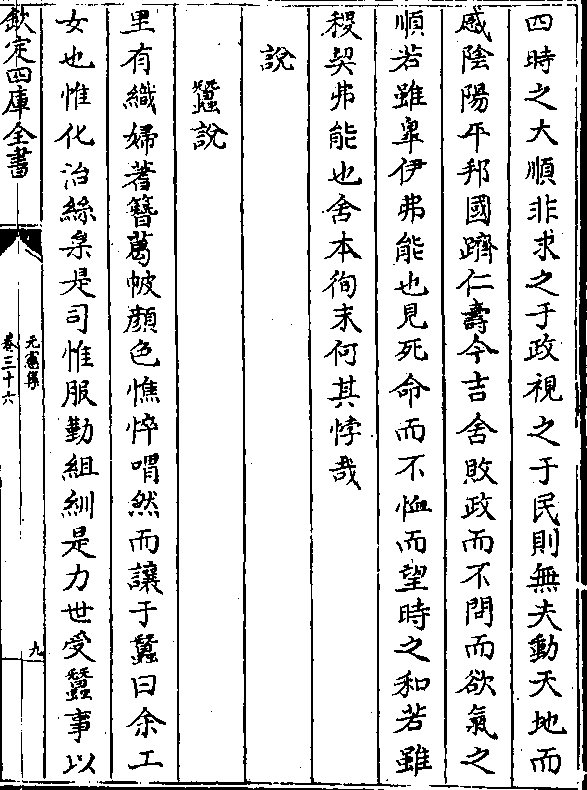 四時之大順非求之于政視之于民則無夫動天地而
感陰陽平邦國躋仁壽今吉舍敗政而不問而欲氣之
順若雖皐伊弗能也見死命而不恤而望時之和若雖
稷契弗能也舍本徇末何其悖哉
說
蠶說
里有織婦蓍簪葛帔顔色憔悴喟然而讓于蠶曰余工
女也惟化治絲枲是司惟服勤組紃是力世受蠶事以
欽定四庫全書
元憲集
卷三十六
九